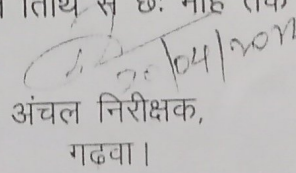 तिथि से छः माह तक
04
अंचल निरीक्षक,
गढवा।